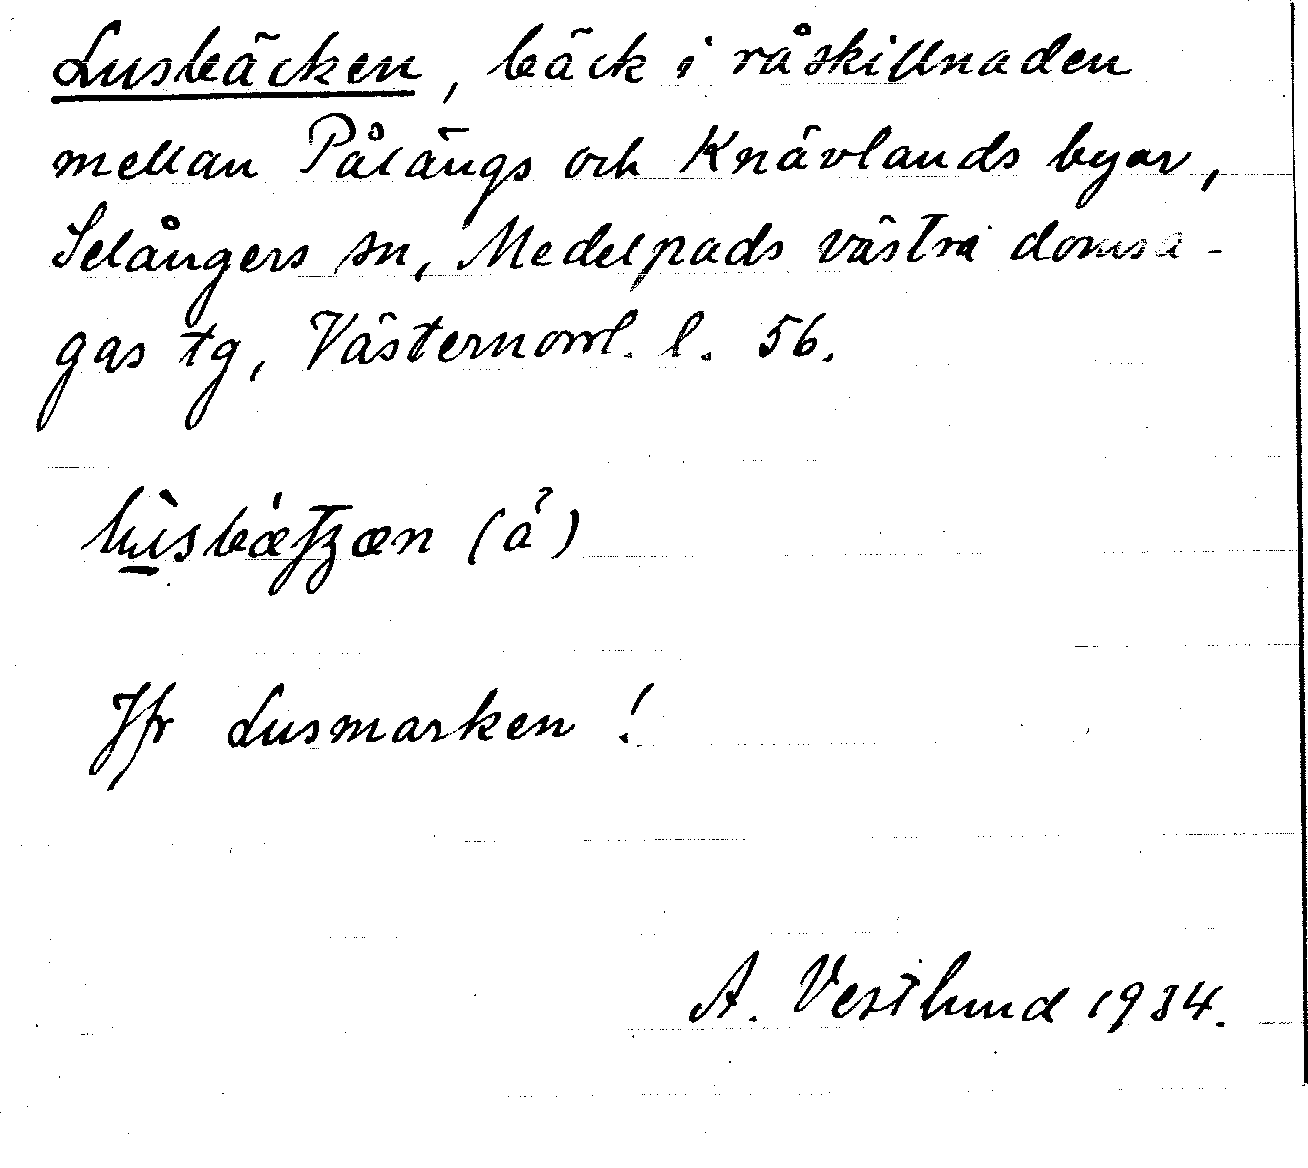 Lusbäcken, bäck i råskillnaden
mellan Påläng​s och Knävlands byar,
Selångers sn, Medelpads västra domsa-
gas tg, Västernorrl. l. 56.
(å)
Jfr Lusmarken!
A. Vestlund 1934.